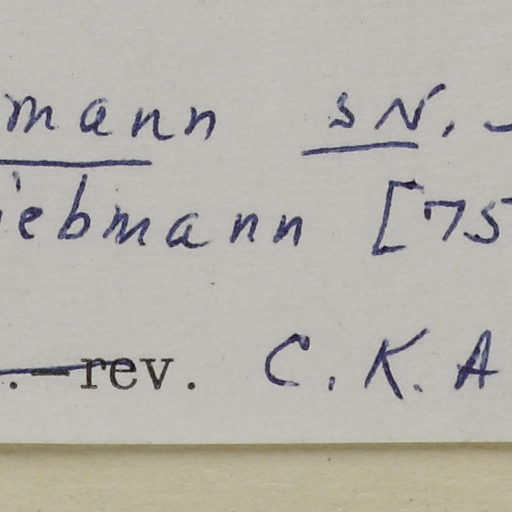 mann sN.
iebmann [75
.—rev. C.K.A